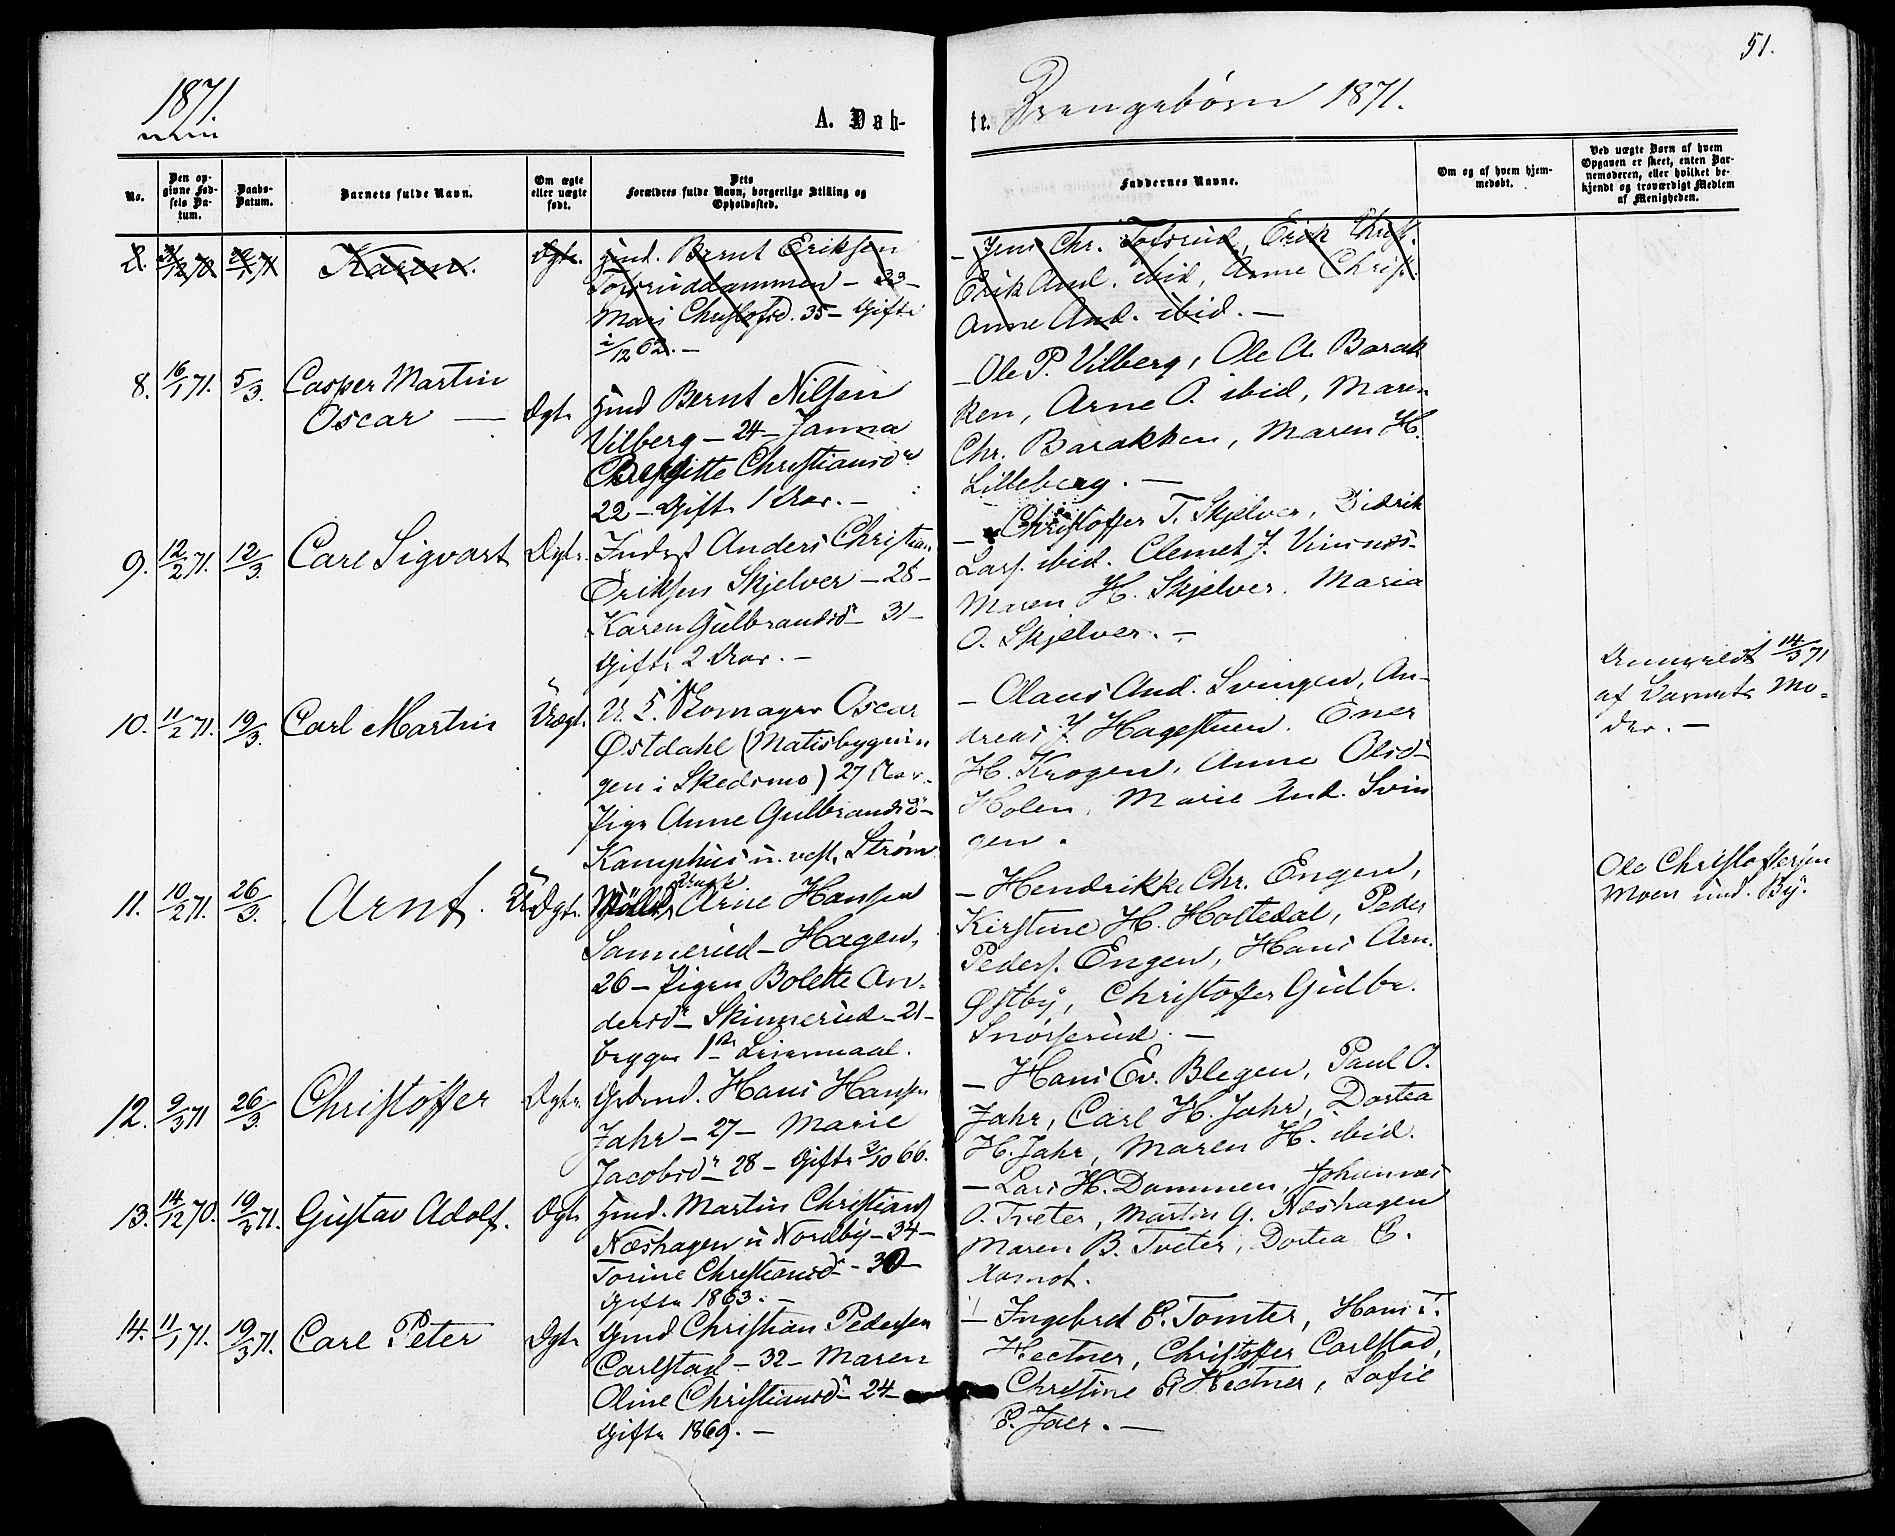 51.
1871.
A. Døb-
te. Drengebørn 1871.
No.
Den op-
givne Fød-
sels Da-
tum.
Daabs-
Datum.
Barnets fulde Navn.
Om ægte
eller uægte
født.
Dets
Forældres fulde Navn, borgerlige Stilling og
Opholdssted.
Faddernes Navne.
Om og af hvem hjem-
medøbt.
Ved uægte Børn af hvem
Opgaven er skeet, enten Bar-
nemoderen, eller hvilket be-
kjendt og troværdigt Medlem
af Menigheden.
Karen.
Ægte.
Hmd. Bernt Eriksen
Tofsruddammen - 33 -
Mari Christofsd. 35 - Gifte
/12 62. -
- Jens Chr. Tofsrud, Erik Christ.
Erik And. ibid, Anne Christ.
Anne And. ibid. -
8.
16/1 71.
5/3.
Casper Martin
Oscar -
Ægte
Hmd Bernt Nilsen
Vilberg - 24 - Janna
Birgitte Christiansdr
22 - Gifte 1 Aar. -
- Ole P. Vilberg, Ole A. Barak
ken, Arne O. ibid, Maren
Chr. Barakken, Maren H.
Lilleberg. -
9.
12/2 71.
12/3.
Carl Sigvart
Ægte.
Inderst Anders Christian
Eriksen Skjelver - 28 -
Karen Gulbrandsdr - 31 -
Gifte 2 Aar. -
- Christoffer T. Skjelver, Didrik
Lars. ibid. Clemet J. Vinsnes.
Maren H. Skjelver. Maria
O. Skjelver. -
10.
11/2 71.
19/3.
Carl Martin
Uægte.
U. E. Skomager Oscar
Østdahl (Matisbygnin
gen i Skedsmo) 27 Aar.
Pige Anne Gulbrandsdr -
Kamphus u. vest. Strøm
- Olaus And. Svingen, An-
dreas J. Hagestuen. Ener
H. Krogen, Anne Olsdr
Holen, Marie And. Svin
gen.
Anmeldt 14/3 71
af Barnets Mo-
der. -
11.
10/2 71.
26/3.
Arnt.
UÆgte.
Arne Hansen
Sannerud - Hagen,
26 - Pigen Bolette An-
dersdr Skinnerud - 21 -
begges 1ste Leiermaal.
- Hendrikke Chr. Engen,
Kirstine H. Holtedal, Peder
Peders. Engen, Hans Arn.
Østby, Christoffer Gulbr.
Snørserud. -
Ole Christoffersen
Moen und. By.
12.
9/3 71
26/3.
Christoffer
Ægte.
Grdmd. Hans Hansen
Jahr - 27 - Marie
Jacobsdr - 28 - Gifte 2/10 66.
- Hans Ev. Blegen, Paul O.
Jahr, Carl H. Jahr, Dortea
H. Jahr, Maren H. ibid.
13.
14/12 70.
19/3 71.
Gustav Adolf.
Ægte
Hmd. Martin Christians
Næshagen u Nordby - 34 -
Torine Christiansdr - 30 -
Gifte 1863. -
- Lars H. Dammen, Johannes
O. Tveter, Martin G. Næshagen
Maren B. Tveter, Dortea C.
Aamot.
14.
11/1 71.
19/3 71.
Carl Peter
Ægte
Gmd Christian Pedersen
Carlstad - 32 - Maren
Oline Christiansdr - 24 -
Gifte 1869. -
- Ingebrd E. Tomter, Hans T.
Hectner, Christoffer Carlstad,
Christine E. Hectner, Sofie
P. Jaer. -